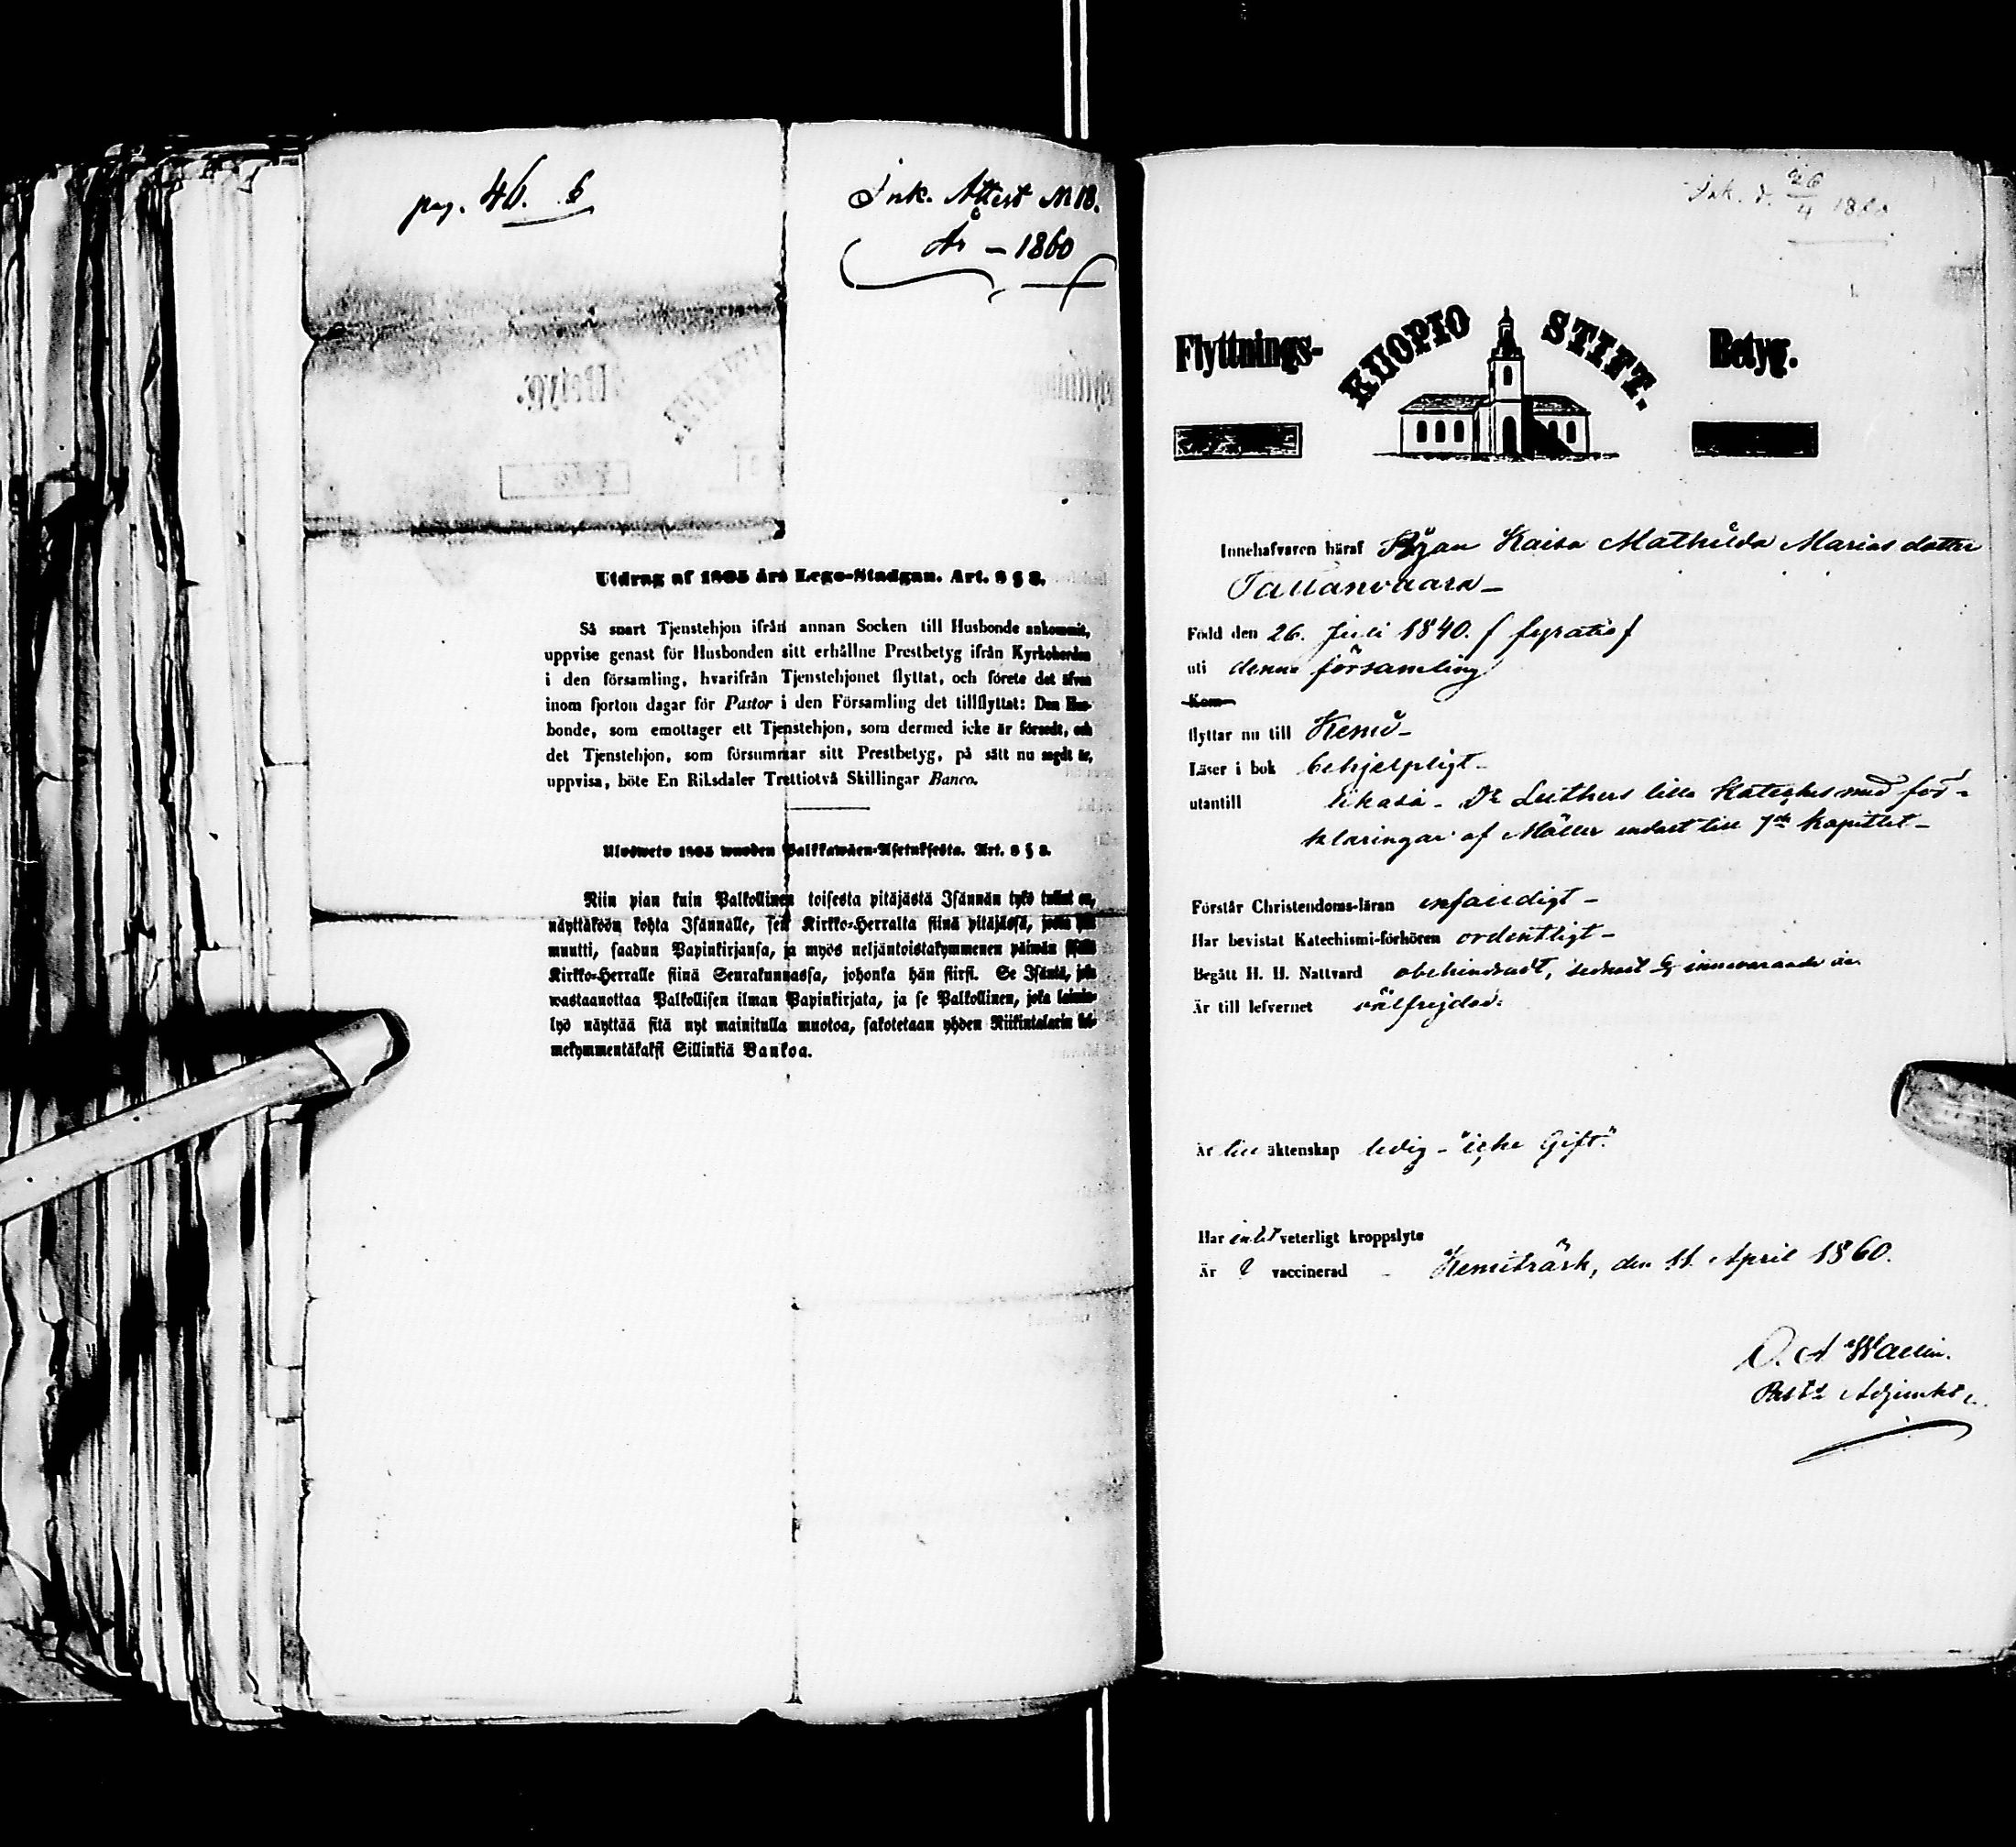 pag. 46. b
Ink. Attest N 18.
År – 1860
Utdrag af 1805 års Lego-Stadgan. Art. 8 § 8.
Så snart Tjenstehjon ifrån annan Socken till Husbonde ankommit,
uppvise genast för Husbonden sitt erhållne Prestbetyg ifrån Kyrkoherden
i den församling, hvarifrån Tjenstehjonet flyttat, och förete det äfven
inom fjorton dagar för Pastor i den Församling det tillflyttat: Den Hus-
bonde, som emottager ett Tjenstehjon, som dermed icke är försedt, och
det Tjenstehjon, som försummar sitt Prestbetyg, på sätt nu sagdt är,
uppvisa, böte En Riksdaler Trettiotvå Skillingar Banco.
Ulosweto 1805 wuoden Palkkawäen-Asetuksesta. Art. 8 § 8.
Niin pian kuin Palkollinen toisesta pitäjästä Isännän tykö tullut on,
näyttäköön kohta Isännälle, sen Kirkko-Herralta siinä pitäjässä, josta hän
muutti, saadun Papinkirjansa, ja myös neljäntoistakymmenen päiwän sisällä
Kirkko-Herralle siinä Seurakunnassa, johonka hän siirsi. Se Isäntä, joka
wastaanottaa Palkollisen ilman Papinkirjata, ja se Palkollinen, joka laimin-
lyö näyttää sitä nyt mainitulla muotoa, sakotetaan yhden Riikintalarin kol-
mekymmentäkaksi Sillinkiä Bankoa.
Ink. d. 26/4 1860
Flyttnings- KUOPIO STIFT. Betyg.
Innehafvaren häraf Pigan Kaisa Mathilda Marias dotter
Tallanvaara –
Född den 26. Juli 1840. / fyratio /
uti denna församling
Kom
flyttar nu till Kemi –
Läser i bok behjelpligt –
utantill likaså – Dr Luthers lilla Kateches med för-
klaringar af Möller endast till 7de kapitlet –
Förstår Christendoms-läran enfaldigt –
Har bevistat Katechismi-förhören ordentligt –
Begått H. H. Nattvard obehindradt, sednast innevarande år
Är till lefvernet välfrejdad.
Är till äktenskap ledig – "icke Gift."
Har intet veterligt kroppslyte
Är vaccinerad – Kemiträsk, den 11 April 1860.
O. A Wallin.
Past:s Adjunkt